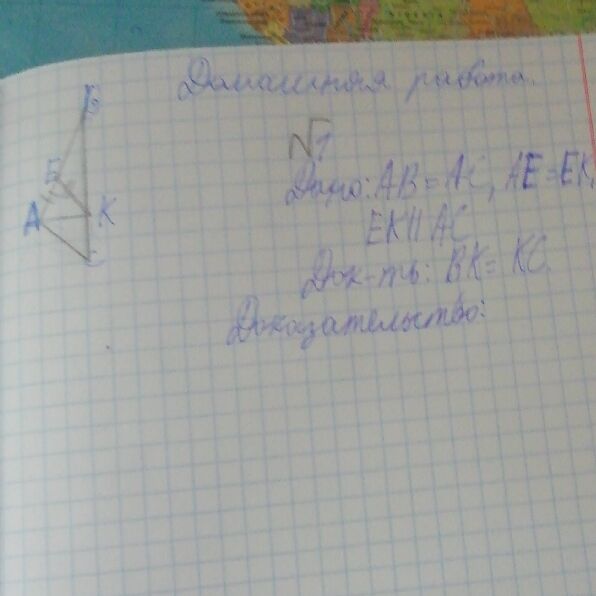 Домашняя работа.
№1
Дано: AB = AC, AE = EK,
EK || AC
Док-ть: BK = KC.
Доказательство:
B
E
A
K
C